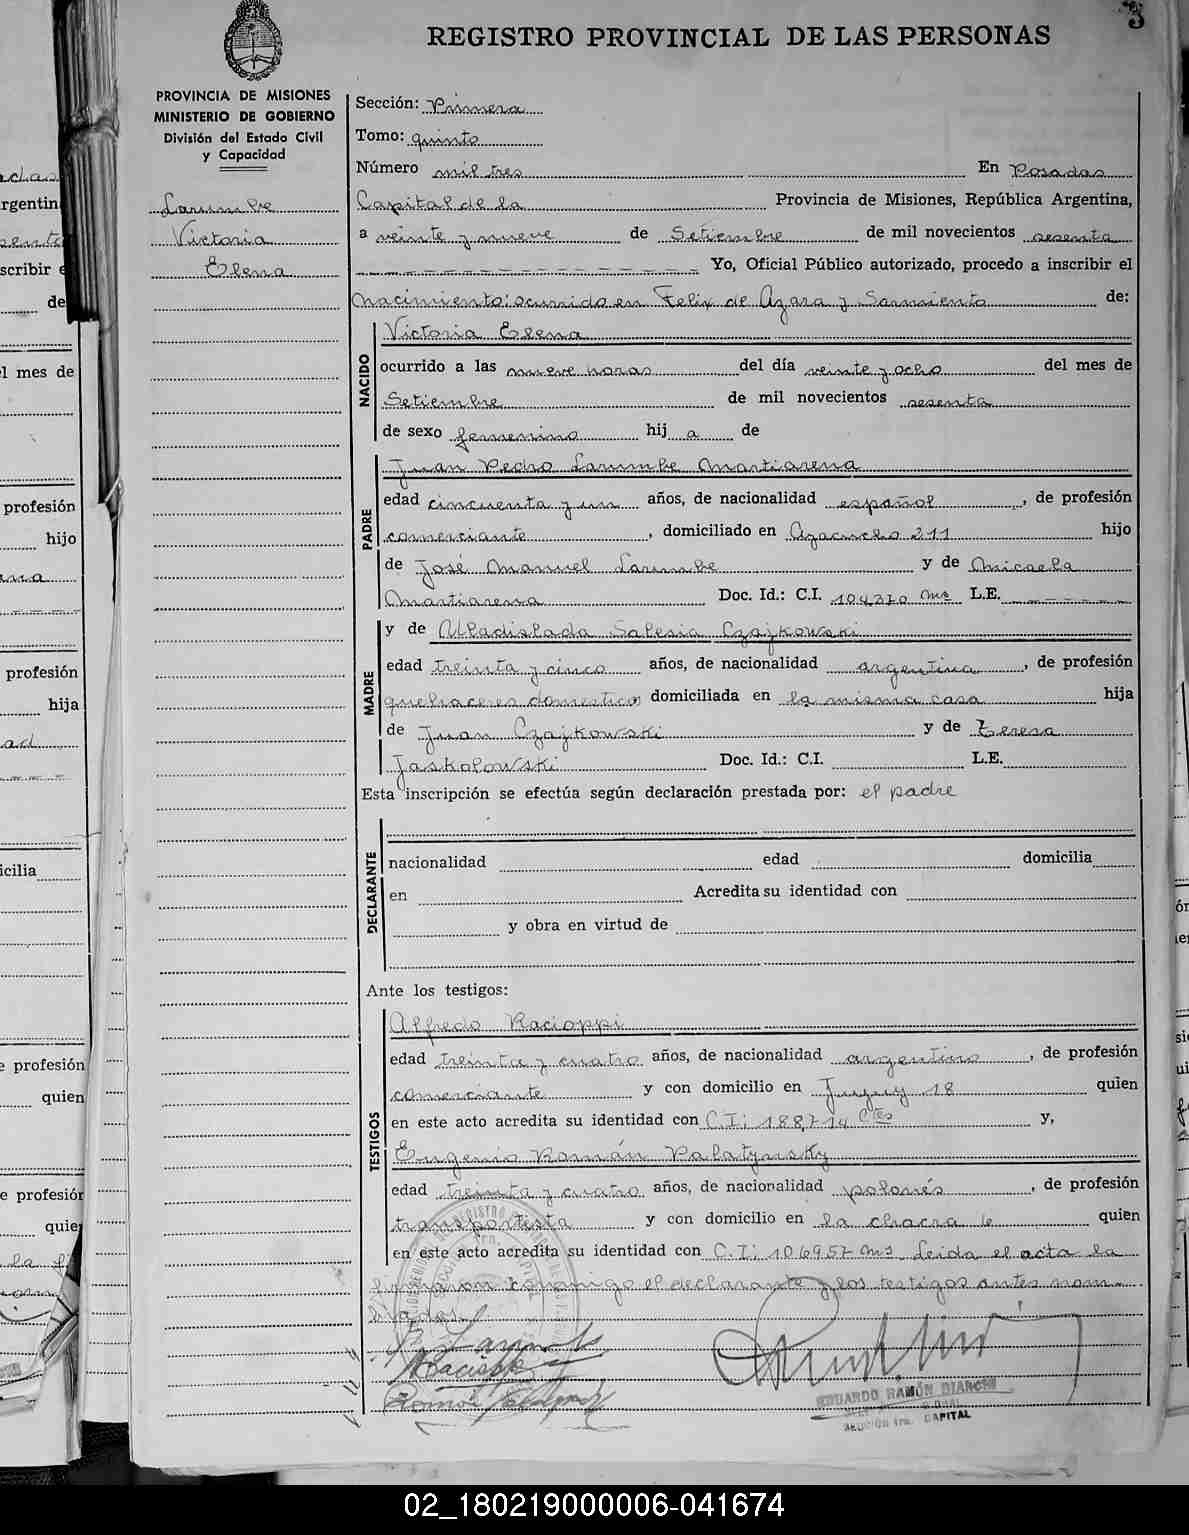 3
REGISTRO PROVINCIAL DE LAS PERSONAS
PROVINCIA DE MISIONES
MINISTERIO DE GOBIERNO
División del Estado Civil
y Capacidad
Larumbe
Victoria
Elena
Sección: Primera
Tomo: quinto
Número mil tres En Posadas
Capital de la Provincia de Misiones, República Argentina,
a veinte y nueve de Setiembre de mil novecientos sesenta
Yo, Oficial Público autorizado, procedo a inscribir el
nacimiento: ocurrido en Felix de Azara y Sarmiento de:
NACIDO
Victoria Elena
ocurrido a las nueve horas del día veinte y ocho del mes de
Setiembre de mil novecientos sesenta
de sexo femenino hij a de
PADRE
Juan Pedro Larumbe Martiarena
edad cincuenta y un años, de nacionalidad español, de profesión
comerciante, domiciliado en Ayacucho 211 hijo
de José Manuel Larumbe y de Micaela
Martiarena Doc. Id.: C.I. 104370 Ms L.E.
MADRE
y de Wladislada Salesia Czajkowski
edad treinta y cinco años, de nacionalidad argentina, de profesión
quehaceres domesticos domiciliada en la misma casa hija
de Juan Czajkowski y de Teresa
Jaskolowski Doc. Id.: C.I. L.E.
Esta inscripción se efectúa según declaración prestada por: el padre
DECLARANTE
nacionalidad edad domicilia
en Acredita su identidad con
y obra en virtud de
Ante los testigos:
TESTIGOS
Alfredo Racioppi
edad treinta y cuatro años, de nacionalidad argentino, de profesión
comerciante y con domicilio en Jujuy 18 quien
en este acto acredita su identidad con C.I: 188714 Ctes y,
Eugenio Román Palatynsky
edad treinta y cuatro años, de nacionalidad polonés, de profesión
transportista y con domicilio en la chacra 6 quien
en este acto acredita su identidad con C.I: 106957 Ms Leida el acta la
firmaron conmigo el declarante y los testigos antes nom-
brados.
EDUARDO RAMÓN BIANCHI
SECCIÓN 1ra. CAPITAL
02_180219000006-041674